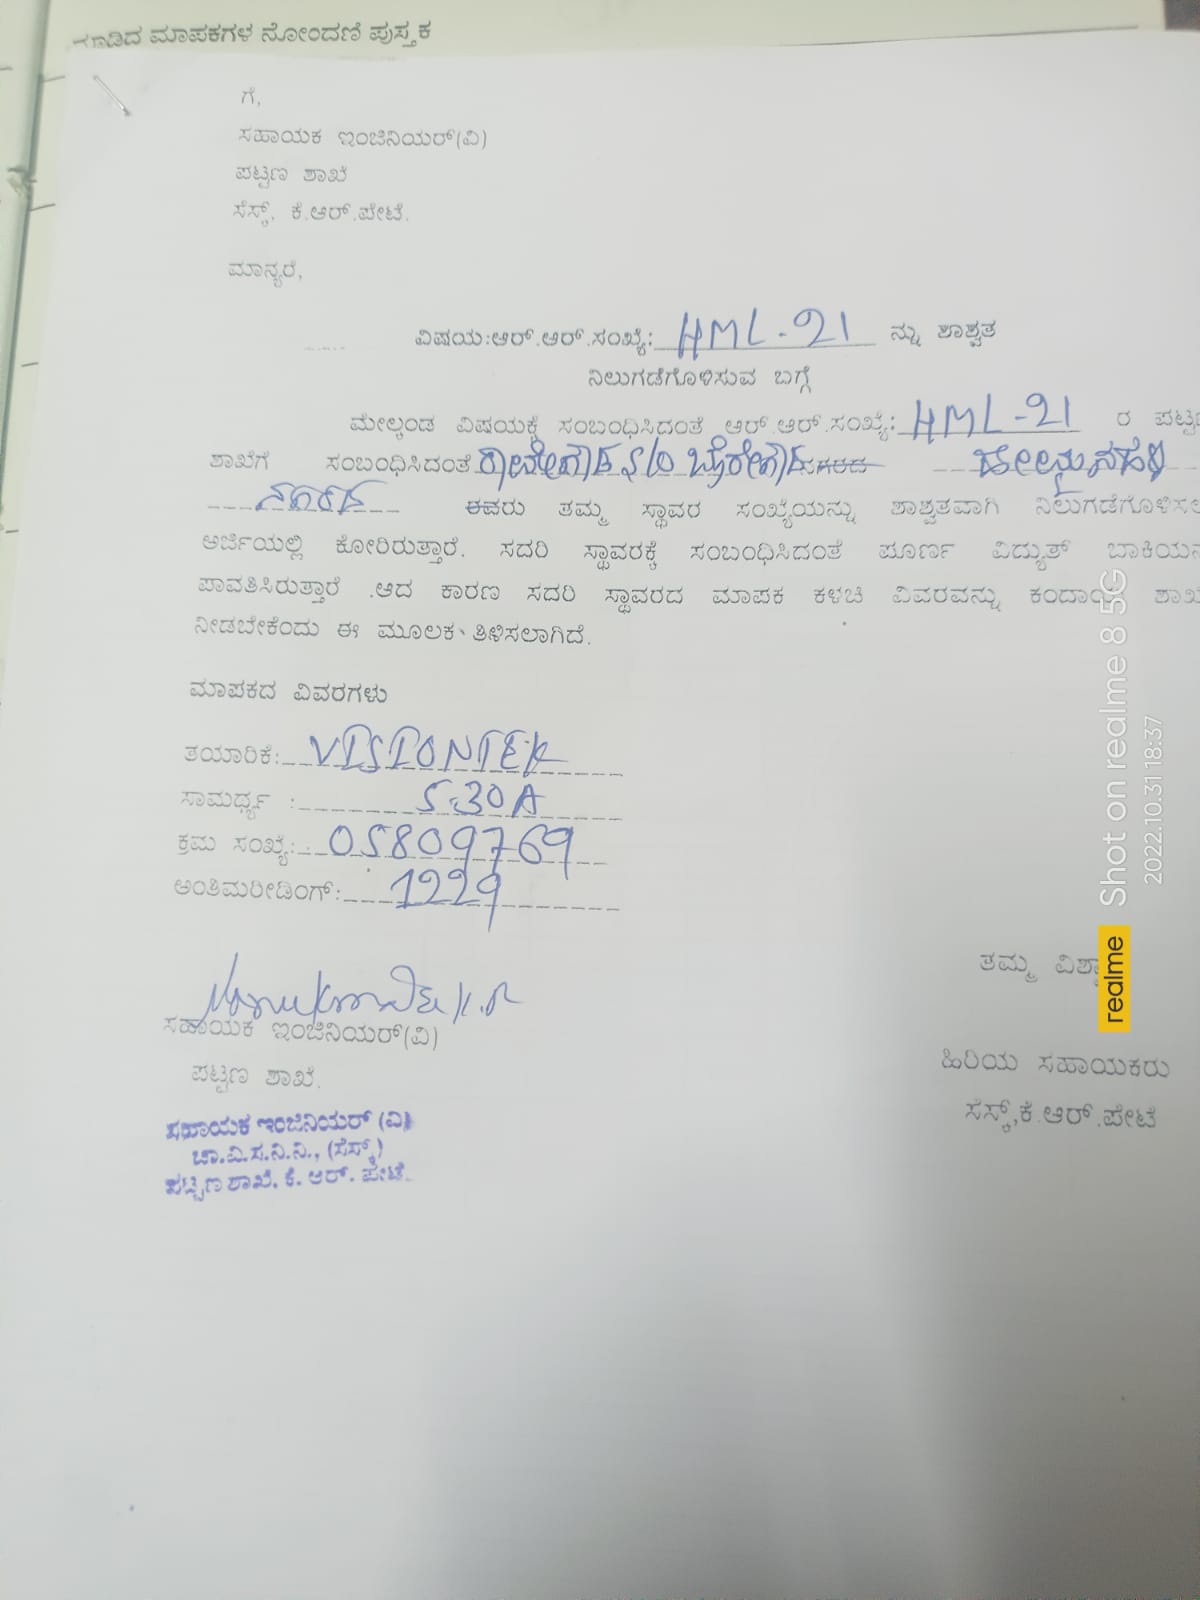 ಮಾಪಕಗಳ ನೋಂದಣಿ ಪುಸ್ತಕ
ಗೆ,
ಸಹಾಯಕ ಇಂಜಿನಿಯರ್(ವಿ)
ಪಟ್ಟಣ ಶಾಖೆ
ಸೆಸ್ಕ್, ಕೆ.ಆರ್.ಪೇಟೆ.
ಮಾನ್ಯರೆ,
ವಿಷಯ:ಆರ್.ಆರ್.ಸಂಖ್ಯೆ: HML-21 ನ್ನು ಶಾಶ್ವತ
ನಿಲುಗಡೆಗೊಳಿಸುವ ಬಗ್ಗೆ
ಮೇಲ್ಕಂಡ ವಿಷಯಕ್ಕೆ ಸಂಬಂಧಿಸಿದಂತೆ ಆರ್.ಆರ್.ಸಂಖ್ಯೆ: HML-21 ರ
ಶಾಖೆಗೆ ಸಂಬಂಧಿಸಿದಂತೆ S/O
ಈವರು ತಮ್ಮ ಸ್ಥಾವರ ಸಂಖ್ಯೆಯನ್ನು ಶಾಶ್ವತವಾಗಿ
ಅರ್ಜಿಯಲ್ಲಿ ಕೋರಿರುತ್ತಾರೆ. ಸದರಿ ಸ್ಥಾವರಕ್ಕೆ ಸಂಬಂಧಿಸಿದಂತೆ ಪೂರ್ಣ ವಿದ್ಯುತ್
ಪಾವತಿಸಿರುತ್ತಾರೆ .ಆದ ಕಾರಣ ಸದರಿ ಸ್ಥಾವರದ ಮಾಪಕ ಕಳಚಿ ವಿವರವನ್ನು
ನೀಡಬೇಕೆಂದು ಈ ಮೂಲಕ ತಿಳಿಸಲಾಗಿದೆ.
ಮಾಪಕದ ವಿವರಗಳು
ತಯಾರಿಕೆ: VISIONTEK
ಸಾಮರ್ಥ್ಯ : 5-30A
ಕ್ರಮ ಸಂಖ್ಯೆ: 05809769
ಅಂತಿಮರೀಡಿಂಗ್: 1229
ತಮ್ಮ
ಸಹಾಯಕ ಇಂಜಿನಿಯರ್(ವಿ)
ಪಟ್ಟಣ ಶಾಖೆ.
ಹಿರಿಯ ಸಹಾಯಕರು
ಸೆಸ್ಕ್,ಕೆ.ಆರ್.ಪೇಟೆ
ಸಹಾಯಕ ಇಂಜಿನಿಯರ್ (ವಿ)
ಚಾ.ವಿ.ಸ.ನಿ.ನಿ., (ಸೆಸ್ಕ್)
ಪಟ್ಟಣ ಶಾಖೆ. ಕೆ. ಆರ್. ಪೇಟೆ.
realme Shot on realme 8 5G
2022.10.31 18:37